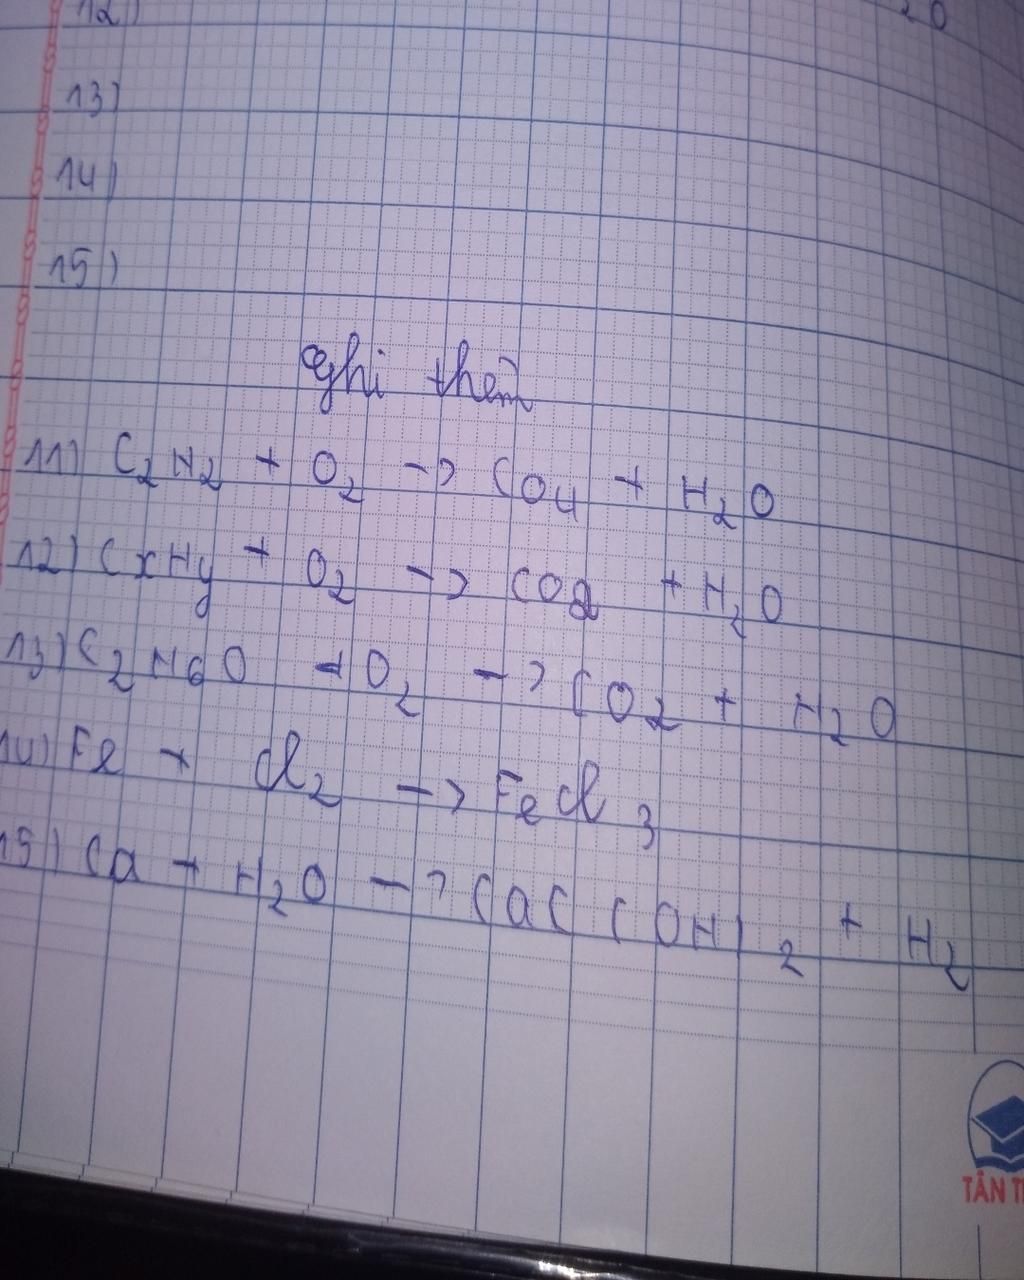 12)
20
13)
14)
15)
ghi thêm
11) C2H2 + O2 -> CO4 + H2O
12) CxHy + O2 -> CO2 + H2O
13) C2H6O + O2 -> CO2 + H2O
14) Fe + Cl2 -> FeCl3
15) Ca + H2O -> CaC (OH)2 + H2
TÂN T